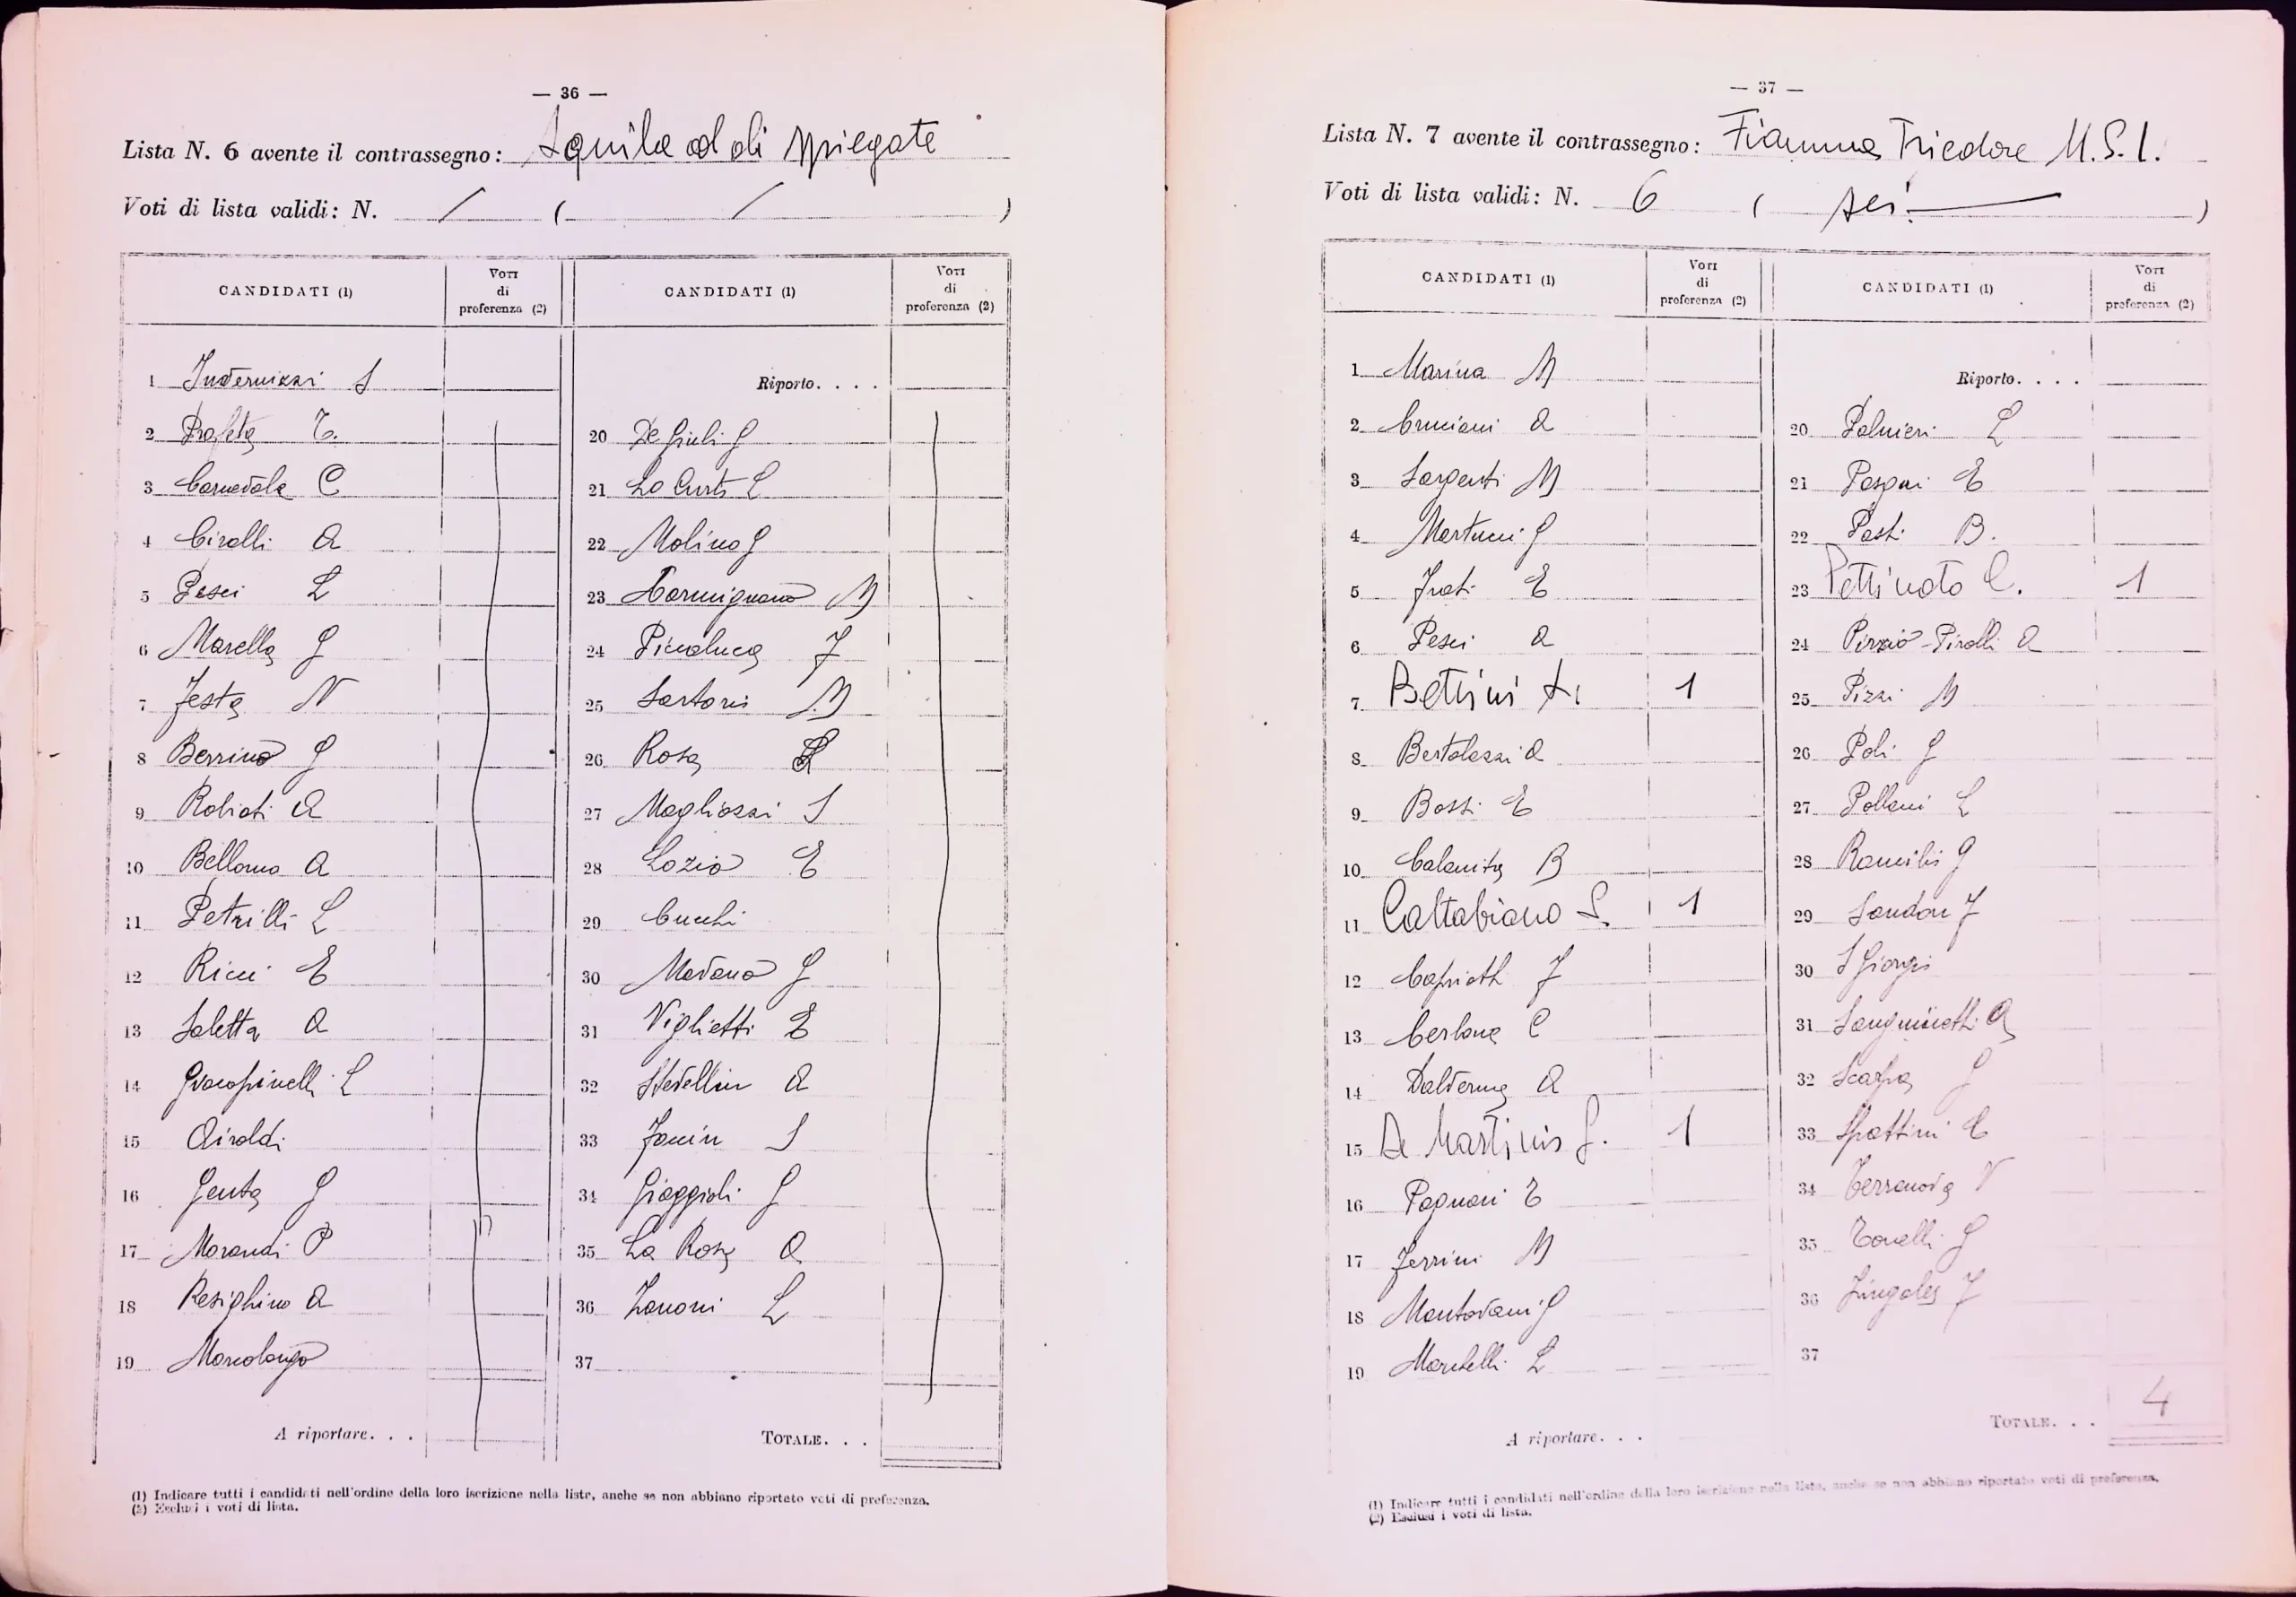 — 36 —
Lista N. 6 avente il contrassegno: Aquila ad ali spiegate
Voti di lista validi: N. / ( / )
CANDIDATI (1)
Voti di preferenza (2)
CANDIDATI (1)
Voti di preferenza (2)
1 Indernizzi S
2 Profeta T.
3 Carnevale C
4 Ciralli A
5 Pesci L
6 Marella G
7 Festa N
8 Berrino G
9 Robiati A
10 Bellomo A
11 Petrilli L
12 Ricci E
13 Saletta A
14 Giacopinelli L
15 Airoldi
16 Genta G
17 Morandi P
18 Resighino A
19 Marcolongo
A riportare. . .
Riporto. . . .
20 De Giuli G
21 Lo Curto L
22 Molino G
23 Carmignano M
24 Piccaluca F
25 Sartoris M
26 Rosa
27 Magliozzi S
28 Lozio E
29 Cucchi
30 Modano G
31 Viglietti E
32 Stevellin A
33 Fanin S
34 Giaggioli G
35 La Rosa A
36 Zanoni L
37
TOTALE. . .
(1) Indicare tutti i candidati nell'ordine della loro iscrizione nella liste, anche se non abbiano riportato voti di preferenza.
(2) Esclusi i voti di lista.
— 37 —
Lista N. 7 avente il contrassegno: Fiamma Tricolore M.S.I.
Voti di lista validi: N. 6 ( sei )
CANDIDATI (1)
Voti di preferenza (2)
CANDIDATI (1)
Voti di preferenza (2)
1 Marina M
2 Cruciani A
3 Sargenti M
4 Martucci G
5 Frati E
6 Pesci A
7 Bettini A. 1
8 Bertolazzi A
9 Bossi E
10 Calamita B
11 Caltabiano S. 1
12 Capriotti F
13 Cerlone C
14 Dalverme A
15 De Martinis G. 1
16 Pagnani E
17 Ferrini M
18 Mantovani G
19 Martelli L
A riportare. . .
Riporto. . . .
20 Palmieri L
21 Pasqui E
22 Pasti B.
23 Pettinato C. 1
24 Pizzio-Pirolli A
25 Pizzi M
26 Poli G
27 Pollani L
28 Ramilis G
29 Sandon F
30 S Giorgis
31 Sanguinetti A
32 Scarpa G
33 Spattini E
34 Terranova V
35 Tonelli G
36 Zingales F
37
TOTALE. . . 4
(1) Indicare tutti i candidati nell'ordine della loro iscrizione nella lista, anche se non abbiano riportato voti di preferenza.
(2) Esclusi i voti di lista.